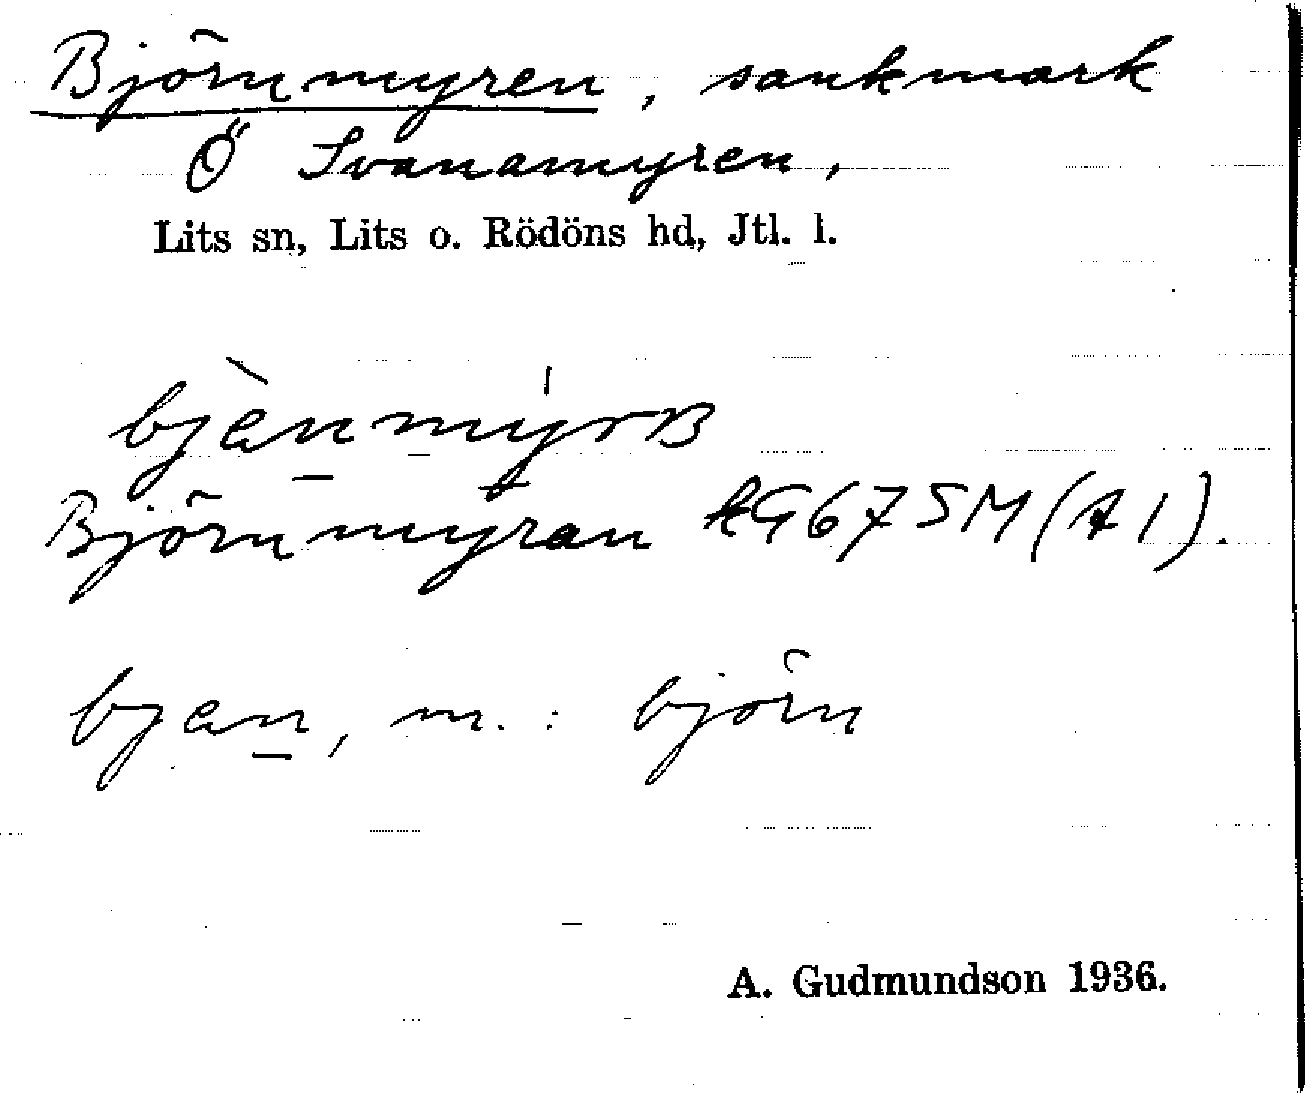 Björnmyren, sankmark
Ö Svanamyren,
Lits sn, Lits o. Rödöns hd, Jtl. l.
bjànmýrʙ
Björnmyran RG67 SM (A 1).
bjan, m.: björn
A. Gudmundson 1936.